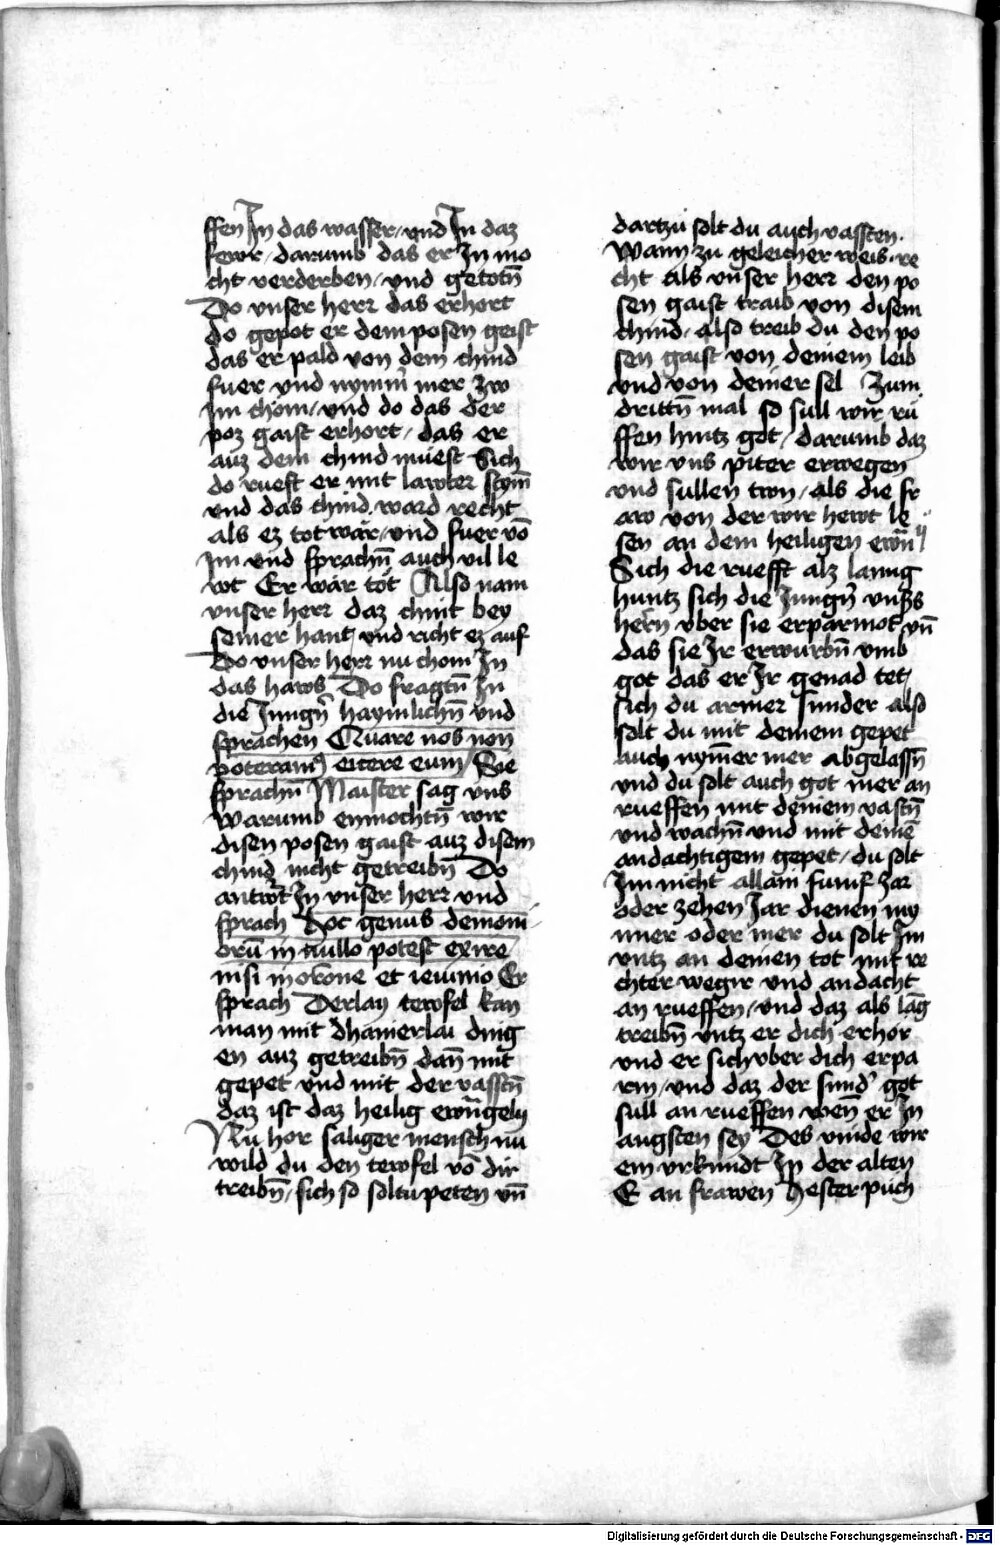 ffen In das wasser / vnd In daz
fewr / darumb das er In mo
cht verderben / vnd getotn̄
Do vnser herr das erhort
do gepot er dem posen geist
das er pald von dem chind
fuer vnd nym̄ mer zw
Im chom / vnd do das der
poz gaist erhort / das er
auz dem chind muest Sich
do rueft er mit lawter stym̄
vnd das chind ward recht
als ez tot wär / vnd fuer vō
Im vnd sprachn̄ auch vil le
wt Er wär tot Also nam
vnser herr daz chint bey
seiner hant / vnd richt ez auf
Do vnser herr nu chom In
das haws Do fragtn̄ In
die Jungn̄ haymlichn̄ vnd
sprachen Quare nos non
poteramꝰ eicere eum / Sie
sprachn̄ Maister sag vns
warumb enmochtn̄ wir
disen posen gaist auz disem
chind nicht getreibn̄ Do
antwt In vnser herr vnd
sprach Hoc genus demoni
orū in nullo potest exire /
nisi in orōne et ieiunio Er
sprach Derlay tewfel kan
man mit dhainerlai ding
en auz getreibn̄ dan̄ mit
gepet vnd mit der vasstn̄
daz ist daz heilig ewn̄gely
Nu hor saliger mensch nu
wild du den tewfel vō dir
treibn̄ / sich so soltu peten vn̄
dartzu solt du auch vassten.
Wann zu geleicher weis re
cht als vnser herr den po
sen gaist traib von disem
chind / also treib du den po
sen gaist von deinem leib
vnd von deiner sel Zum
drittn̄ mal so sull wir rü
ffen hintz got / darumb daz
wir vns piter erwegen
vnd sullen twn / als die fr
aw von der wir hewt le
sen an dem heiligen ewn̄ij
Sich die ruefft alz lanng
huntz sich die Jungn̄ vnsers
hern vber sie erparmot vn̄
das sie Ir erwurbn̄ vmb
got das er Ir genad tet /
sich du armer sunder also
solt du mit deinem gepet
auch nym̄er mer abgelassn̄
vnd du solt auch got mer an
rueffen mit deinem vastn̄
vnd wachn̄ vnd mit deinē
andachtigem gepet / du solt
Im nicht allain funf Jar
oder zehen Jar dienen my
nner oder mer du solt Im
vntz an deinen tot mit re
chter wegir vnd andacht
an rueffen / vnd daz als lāg
treibn̄ vntz er dich erhor
vnd er sich vber dich erpa
rm / vnd daz der sund' got
sull an rueffen wen̄ er In
angsten sey Des vinde wir
ein vrkundt In der alten
E an frawen Hester puch
Digitalisierung gefördert durch die Deutsche Forschungsgemeinschaft - DFG